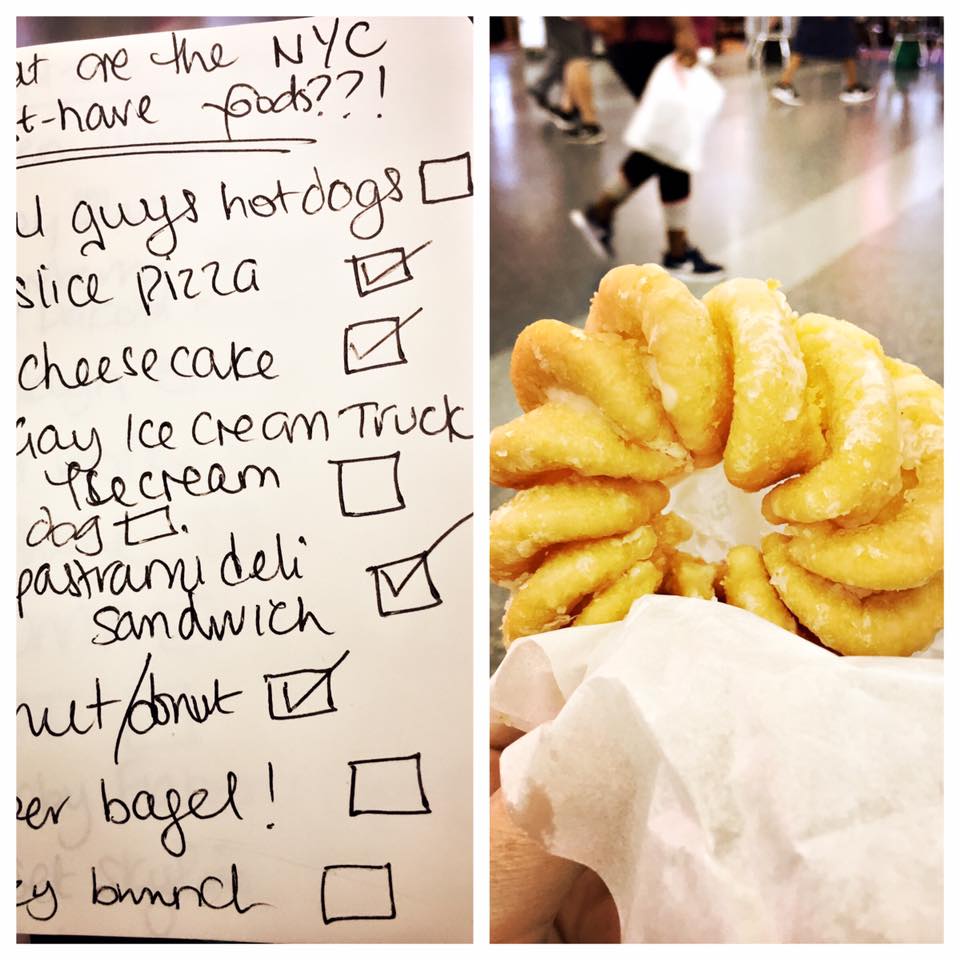 at are the NYC
t-have foods??!
guys hotdogs
slice pizza
cheesecake
Gay Ice Cream Truck
icecream
dog
pastrami deli
sandwich
nut/donut
er bagel!
brunch